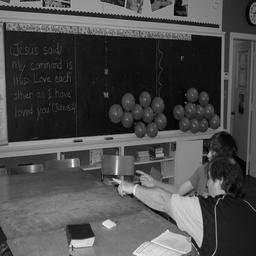 (Jesus said)
My command is
this: Love each
other as I have
loved you (Jesus)